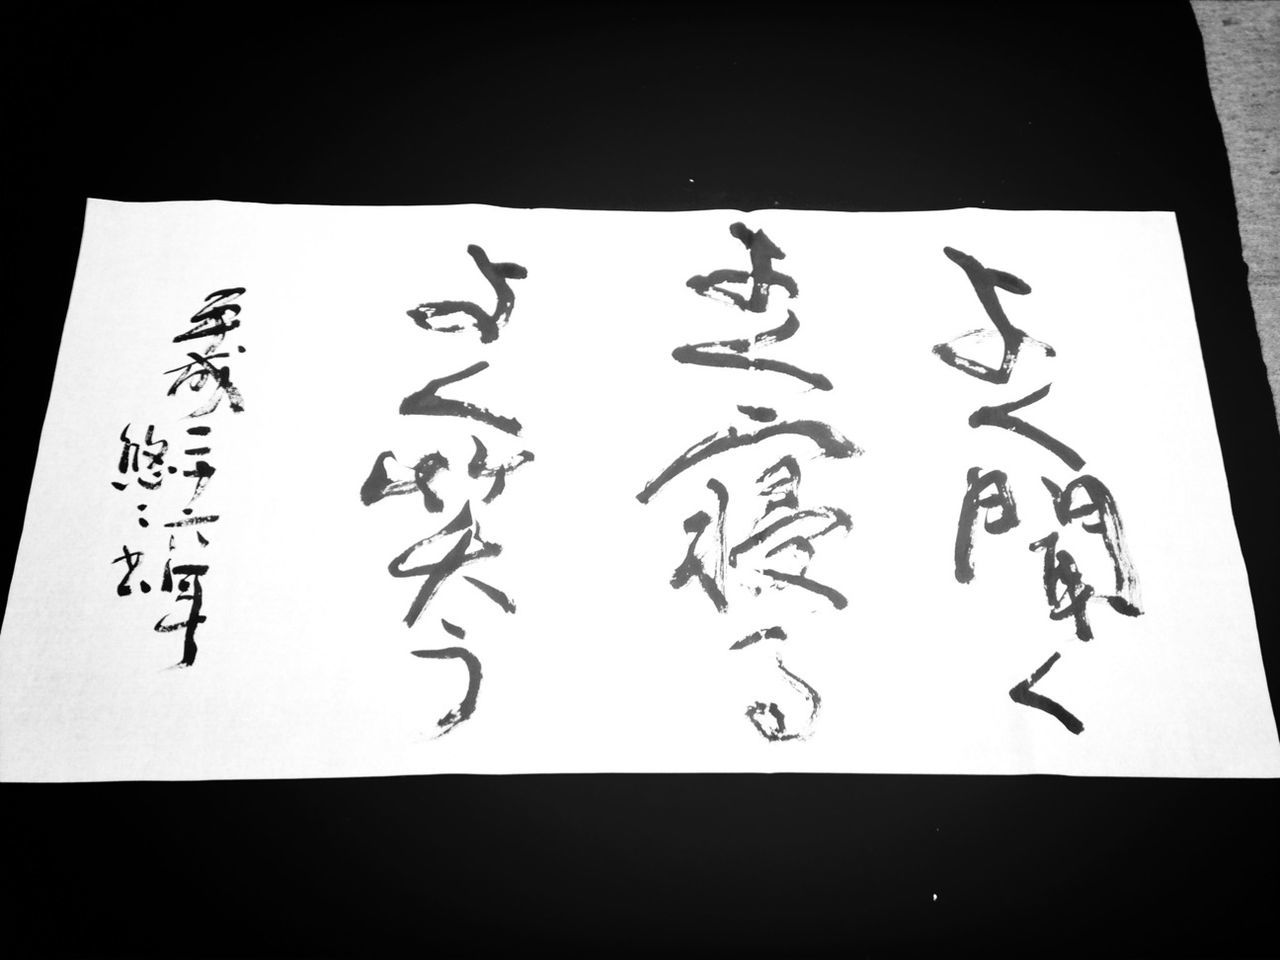 よく聞く
よく寝る
よく笑う
平成二十六年
悠々書